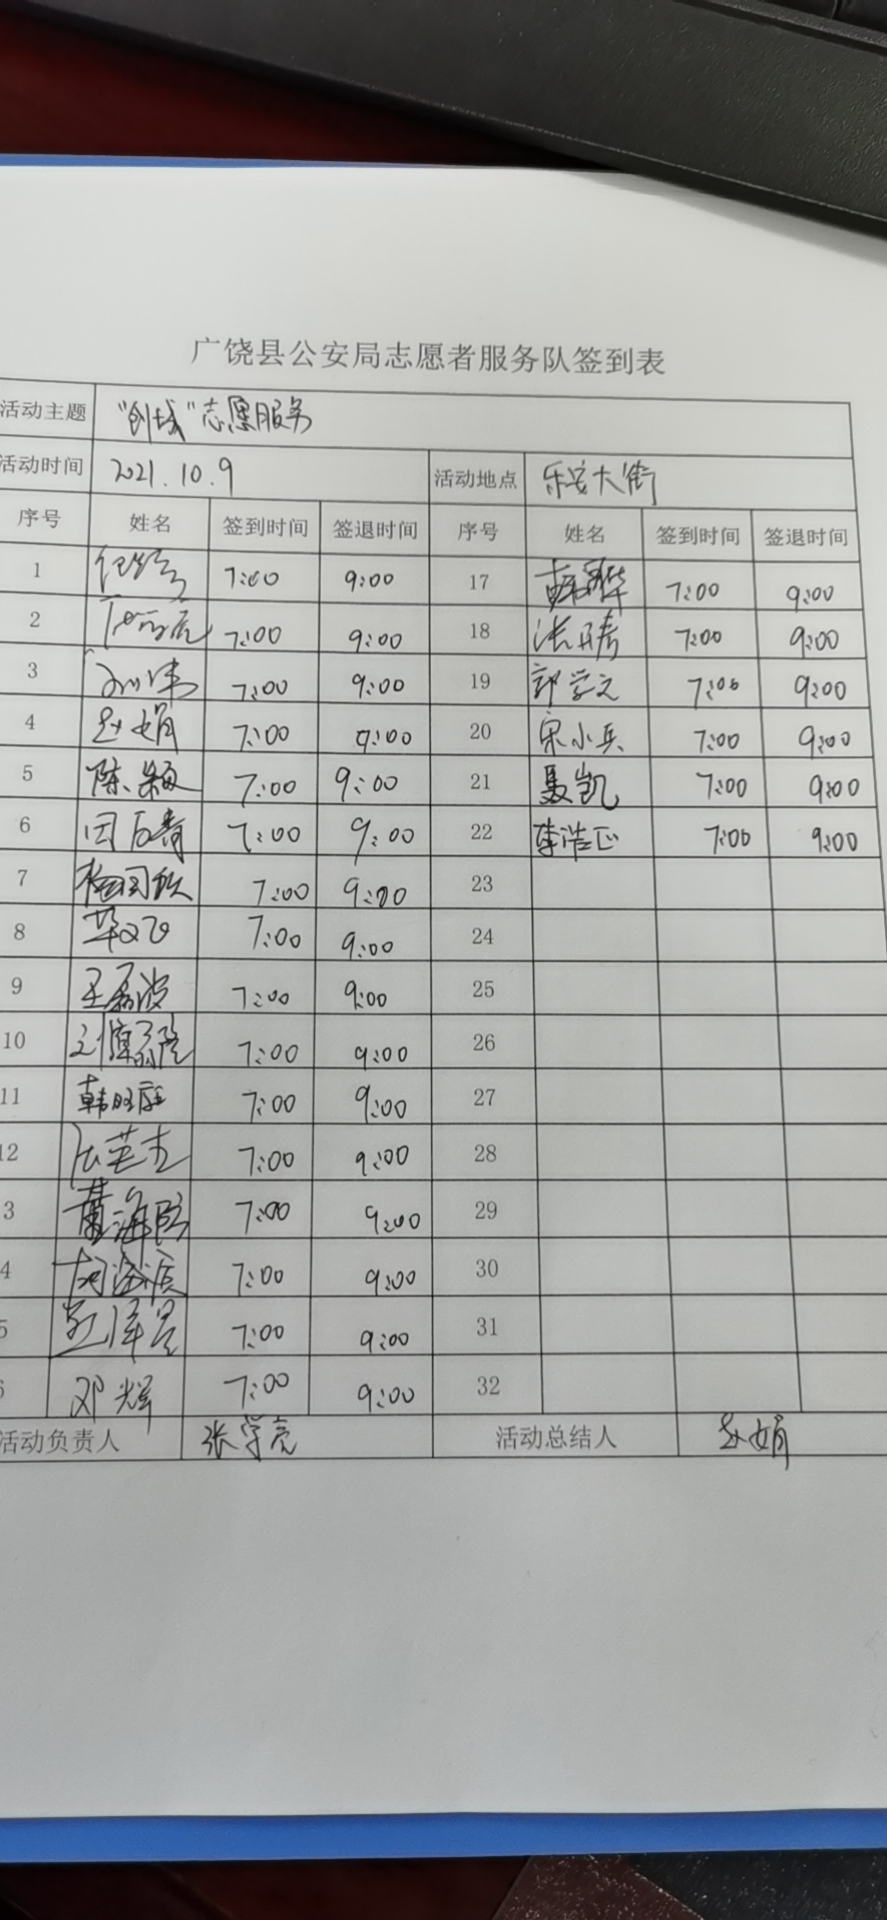 广饶县公安局志愿者服务队签到表
活动主题 "创城"志愿服务
活动时间 2021.10.9 活动地点 乐安大街
序号 姓名 签到时间 签退时间 序号 姓名 签到时间 签退时间
1 7:00 9:00 17 7:00 9:00
2 7:00 9:00 18 7:00 9:00
3 刘伟 7:00 9:00 19 郭学文 7:00 9:00
4 赵娟 7:00 9:00 20 宋小兵 7:00 9:00
5 陈颖 7:00 9:00 21 聂凯 7:00 9:00
6 7:00 9:00 22 李浩正 7:00 9:00
7 7:00 9:00 23
8 7:00 9:00 24
9 王磊波 7:00 9:00 25
10 7:00 9:00 26
11 7:00 9:00 27
12 7:00 9:00 28
3 7:00 9:00 29
4 7:00 9:00 30
5 7:00 9:00 31
6 邓辉 7:00 9:00 32
活动负责人 张学亮 活动总结人 赵娟